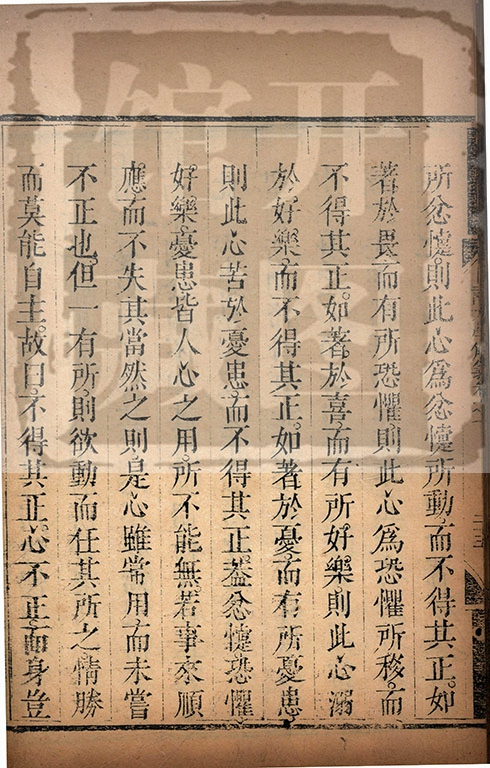 所忿懥則此心爲忿懥所動而不得其正如
著於畏而有所恐懼則此心爲恐懼所移而
不得其正如著於喜而有所好樂則此心溺
於好樂而不得其正如著於憂而有所憂患
則此心苦於憂患而不得其正葢忿懥恐懼
好樂憂患皆人心之用所不能無若事來順
應而不失其當然之則是心雖常用而未嘗
不正也但一有所則欲動而任其所之情勝
而莫能自主故曰不得其正心不正而身豈